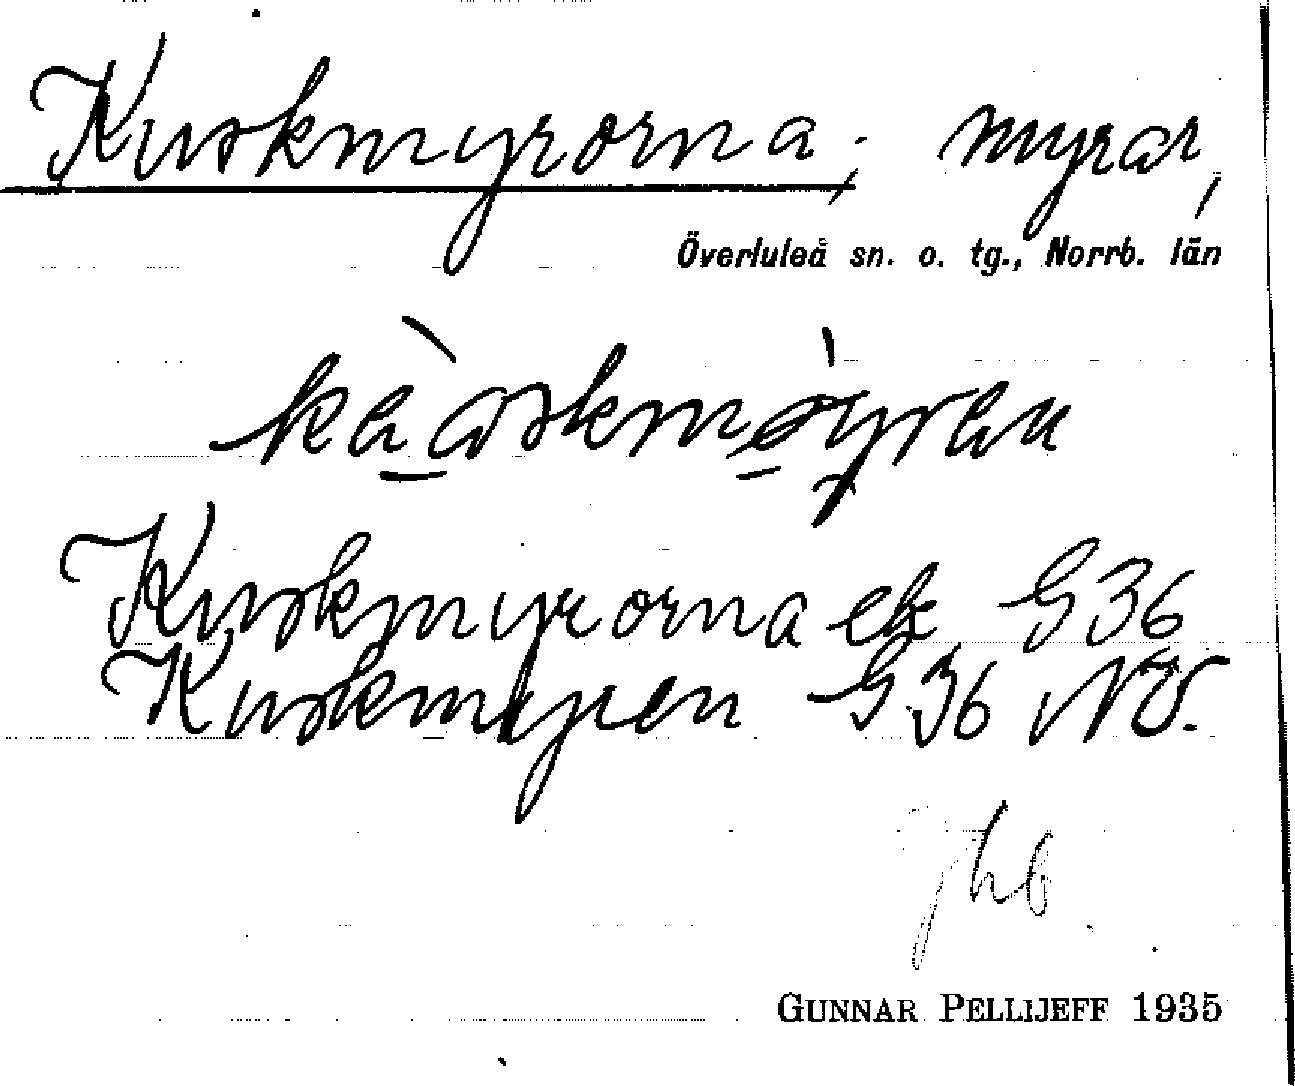 Kuskmyrorna, myrar,
Överluleå sn. o. tg., Norrb. län
Kuskmyrorna ek G36
Kuskmyren G36 NV.
GUNNAR PELLIJEFF 1935